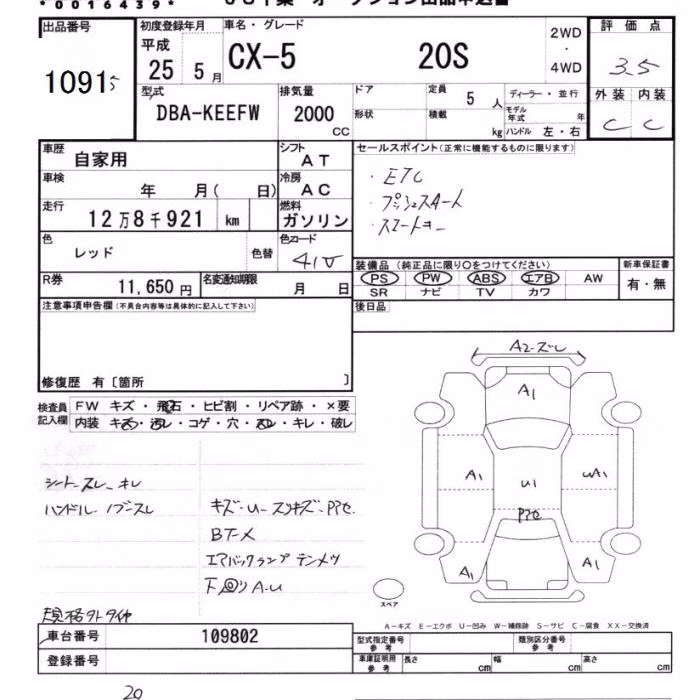 *0016439*
出品番号
10915
初度登録年月
平成
25 5 月
車名・グレード
CX-5 20S
2WD
・
4WD
評価点
3.5
外装 内装
C C
型式
DBA-KEEFW
排気量
2000
CC
ドア
形状
定員
5 人
積載
kg
ディーラー・並行
モデル年式 年
ハンドル 左・右
車歴
自家用
シフト
AT
車検
年 月( 日)
冷房
AC
走行
12万8千921 km
燃料
ガソリン
色
レッド
色替
色コード
41V
R券
11,650 円
名変通知期限
月 日
セールスポイント(正常に機能するものに限ります)
・ETC
・プッシュスタート
・スマートキー
装備品(純正品に限り○をつけてください)
PS PW ABS エアB AW
SR ナビ TV カワ
新車保証書
有・無
後日品
注意事項申告欄(不具合内容等は具体的に記入して下さい)
修復歴 有〔箇所 〕
検査員記入欄
FW キズ・飛石・ヒビ割・リペア跡・×要
内装 キズ・汚レ・コゲ・穴・スレ・キレ・破レ
シートースレーキレ
ハンドル ノブースレ
キズ・U-スリキズ-P他
BT-メ
エアバックランプテンメツ
下回りA-U
規格外タイヤ
A2-ズレ
A1
A1
U1
UA1
P他
A1
A1
スペア
A-キズ E-エクボ U-凹み W-補修跡 S-サビ C-腐食 XX-交換済
車台番号
109802
登録番号
型式指定番号
参考
類別区分番号
参考
車庫証明用
参考
長さ cm
幅 cm
高さ cm
20